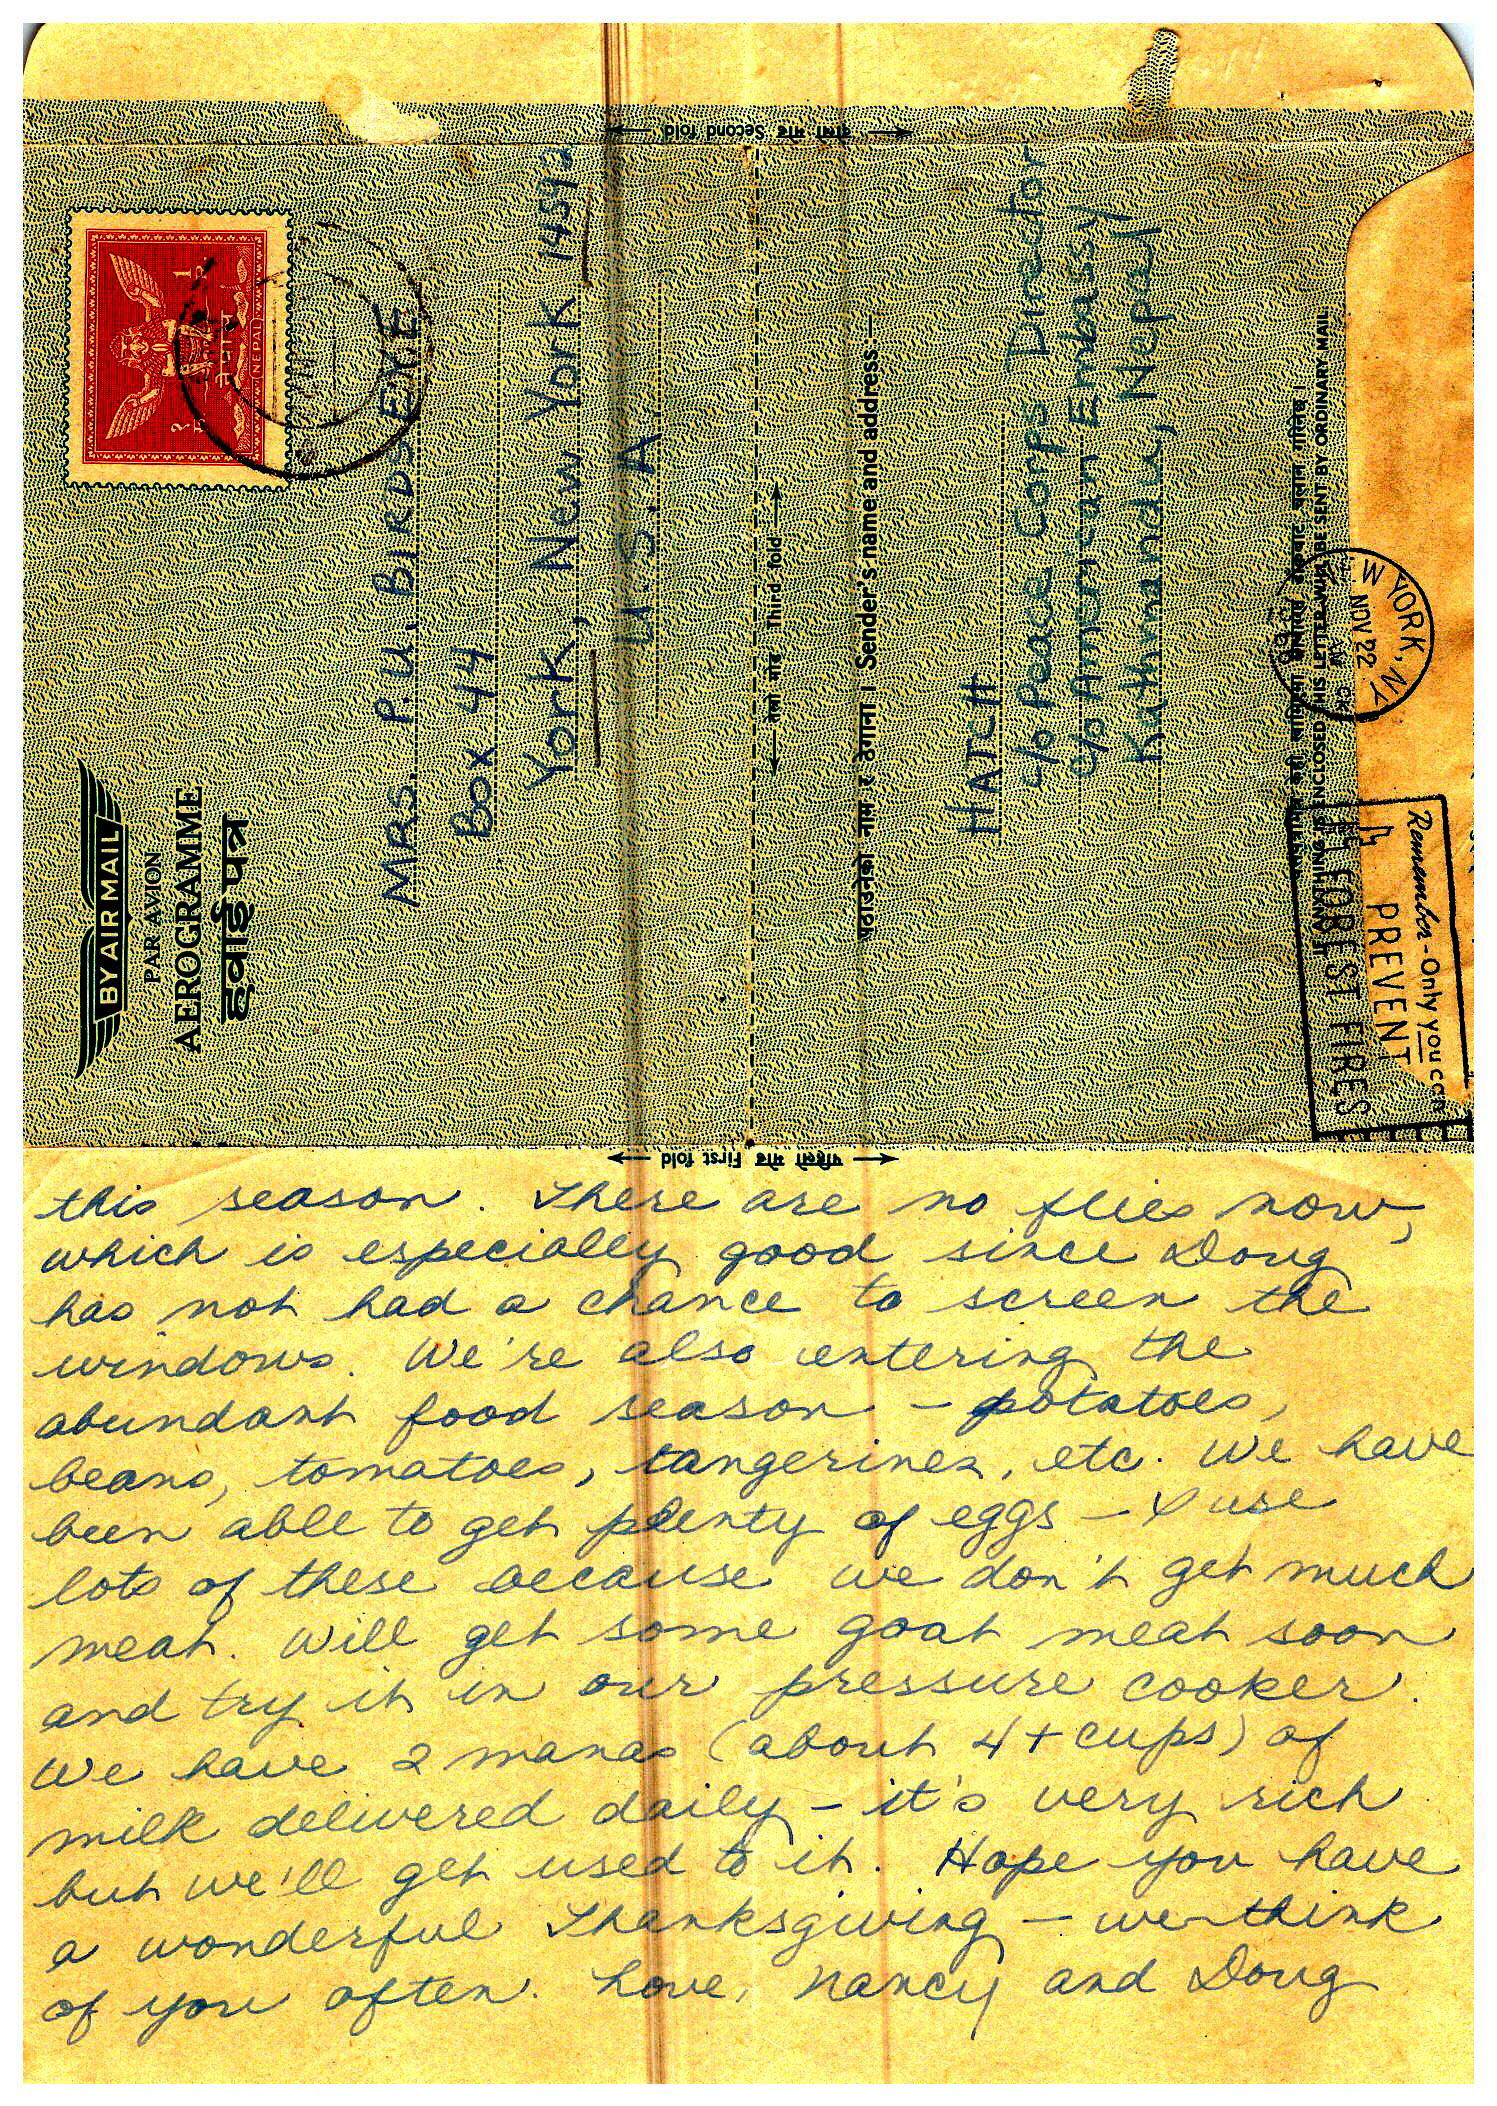 दोस्रो मोड Second fold
BY AIR MAIL
PAR AVION
AEROGRAMME
हवाई पत्र
१
1
नेपाल
NEPAL
MRS. P.U. BIRDSEYE
Box 44
York, New York 14592
U.S.A.
तेस्रो मोड Third fold
पठाउनेको नाम र ठेगाना । Sender's name and address:—
HATCH
c/o Peace Corps Director
c/o American Embassy
Kathmandu, Nepal
IF ANYTHING IS ENCLOSED THIS LETTER WILL BE SENT BY ORDINARY MAIL
NEW YORK, NY
NOV 22
AM
1968
Remember - Only you can
PREVENT
FOREST FIRES
पहिलो मोड First fold
this season. There are no flies now,
which is especially good since Doug
has not had a chance to screen the
windows. We're also entering the
abundant food season - potatoes,
beans, tomatoes, tangerines, etc. We have
been able to get plenty of eggs - I use
lots of these because we don't get much
meat. Will get some goat meat soon
and try it in our pressure cooker.
We have 2 manas (about 4+ cups) of
milk delivered daily - it's very rich
but we'll get used to it. Hope you have
a wonderful Thanksgiving - we think
of you often. Love, Nancy and Doug